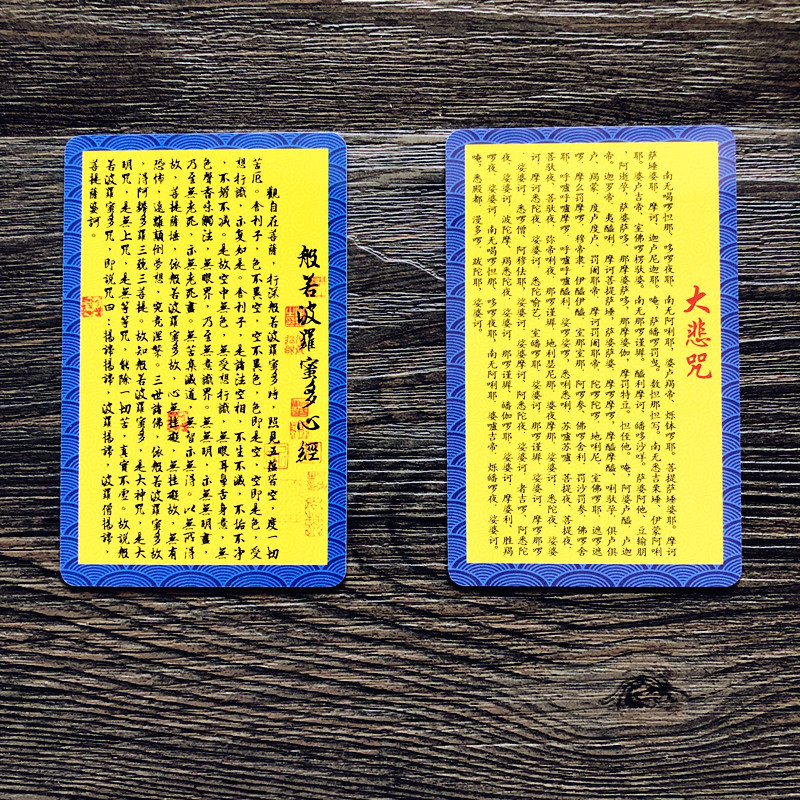 般若波羅蜜多心經
觀自在菩薩，行深般若波羅蜜多時，照見五蘊皆空，度一切
苦厄。舍利子，色不異空，空不異色，色即是空，空即是色，受
想行識，亦复如是。舍利子，是諸法空相，不生不滅，不垢不净
，不增不减。是故空中無色，無受想行識，無眼耳鼻舌身意，無
色聲香味觸法，無眼界，乃至無意識界。無無明，亦無無明盡，
乃至無老死，亦無老死盡。無苦集滅道，無智亦無得。以無所得
故，菩提薩埵，依般若波羅蜜多故，心無挂礙，無挂礙故，無有
恐怖，遠離顛倒夢想，究竟涅槃。三世諸佛，依般若波羅蜜多故
，得阿耨多羅三藐三菩提。故知般若波羅蜜多，是大神咒，是大
明咒，是無上咒，是無等等咒，能除一切苦，真實不虛。故說般
若波羅蜜多咒，即說咒曰：揭諦揭諦，波羅揭諦，波羅僧揭諦，
菩提薩婆訶。
大悲咒
南无喝啰怛那、哆啰夜耶，南无阿唎耶，婆卢羯帝、烁钵啰耶。菩提萨埵婆耶。摩诃
萨埵婆耶，摩诃、迦卢尼迦耶。唵，萨皤罚曳。数怛那怛写。南无悉吉栗埵、伊蒙阿唎
耶。婆卢吉帝、室佛啰楞驮婆。南无那啰谨墀。醯利摩诃、皤哆沙咩。萨婆阿他、豆输朋
，阿逝孕，萨婆萨哆、那摩婆萨哆，那摩婆伽，摩罚特豆。怛侄他。唵，阿婆卢醯。卢迦
帝。迦罗帝。夷醯唎。摩诃菩提萨埵，萨婆萨婆。摩啰摩啰，摩醯摩醯、唎驮孕。俱卢俱
卢、羯蒙。度卢度卢、罚阇耶帝。摩诃罚阇耶帝。陀啰陀啰。地唎尼。室佛啰耶。遮啰遮
啰。摩么罚摩啰。穆帝隶。伊醯伊醯。室那室那。阿啰参、佛啰舍利。罚沙罚参。佛啰舍
耶。呼嚧呼嚧摩啰。呼嚧呼嚧醯利。娑啰娑啰，悉唎悉唎。苏嚧苏嚧。菩提夜、菩提夜。
菩驮夜、菩驮夜。弥帝唎夜。那啰谨墀。地利瑟尼那。婆夜摩那。娑婆诃。悉陀夜。娑婆
诃。摩诃悉陀夜。娑婆诃。悉陀喻艺。室皤啰耶。娑婆诃。那啰谨墀。娑婆诃。摩啰那啰
。娑婆诃。悉啰僧、阿穆佉耶，娑婆诃。娑婆摩诃、阿悉陀夜。娑婆诃。者吉啰、阿悉陀
夜。娑婆诃。波陀摩、羯悉陀夜。娑婆诃。那啰谨墀、皤伽啰耶。娑婆诃。摩婆利、胜羯
啰夜。娑婆诃。南无喝啰怛那、哆啰夜耶，南无阿唎耶。婆嚧吉帝、烁皤啰夜。娑婆诃。
唵，悉殿都、漫多啰、跋陀耶，娑婆诃。